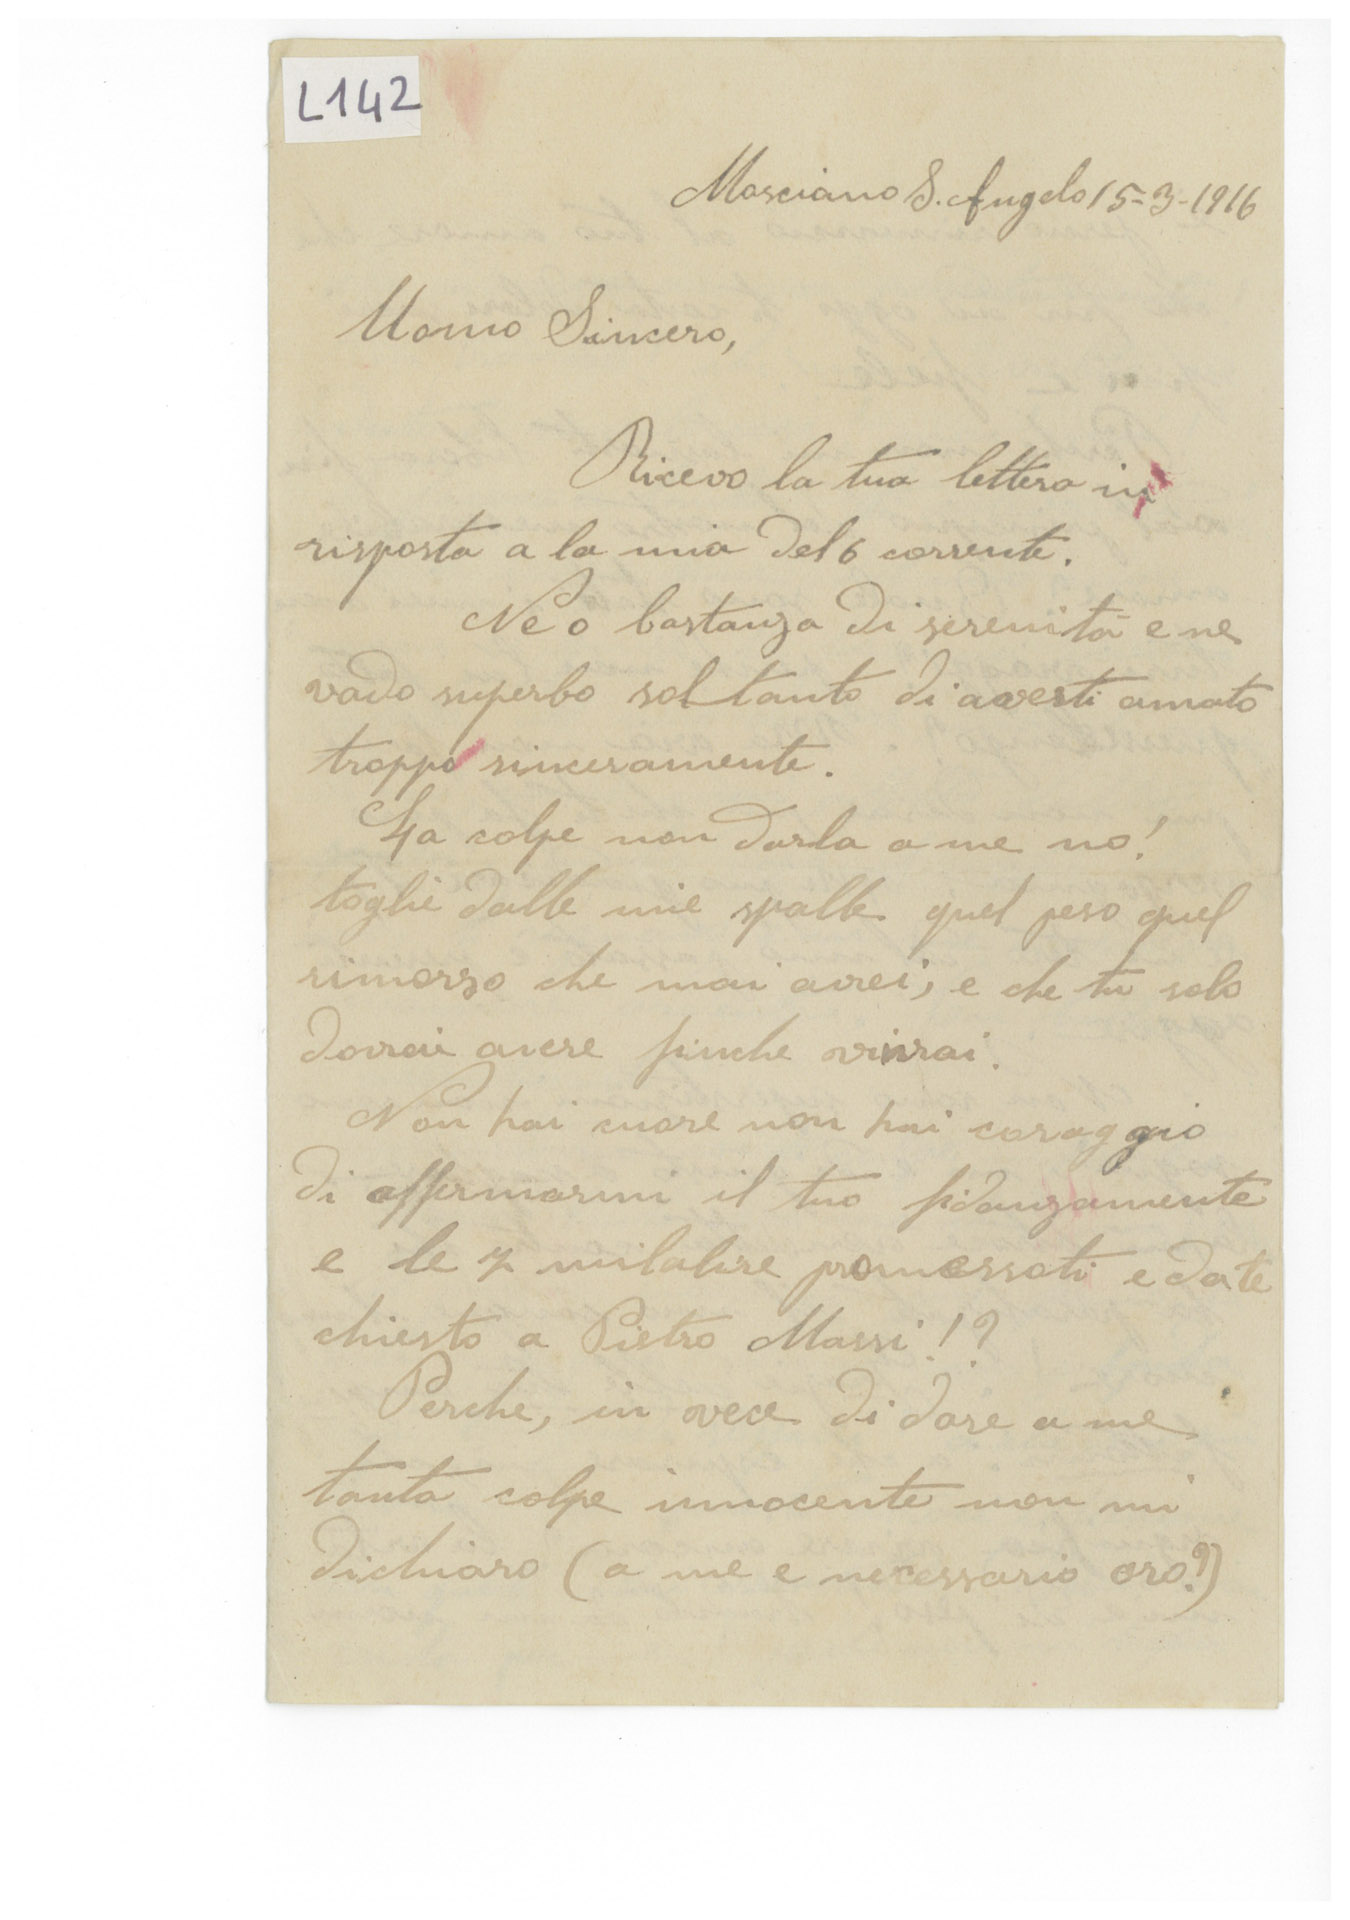 L142
Mosciano S. Angelo 15-3-1916
Uomo Sincero,
Ricevo la tua lettera in
risposta a la mia del 6 corrente.
Ne o bastanza di serenità e ne
vado superbo soltanto di averti amato
troppo sinceramente.
La colpe non darla a me no!
toglie dalle mie spalle quel peso quel
rimorzo che mai avrei, e che tu solo
dovrai avere finche vivrai.
Non hai cuore non hai coraggio
di affermarmi il tuo fidanzamente
e le 7 milalire promessoti e date
chiesto a Pietro Massi!?
Perche, in vece di dare a me
tanta colpe innocente non mi
dichiaro (a me e necessario oro?)